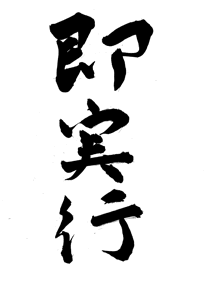 即実行